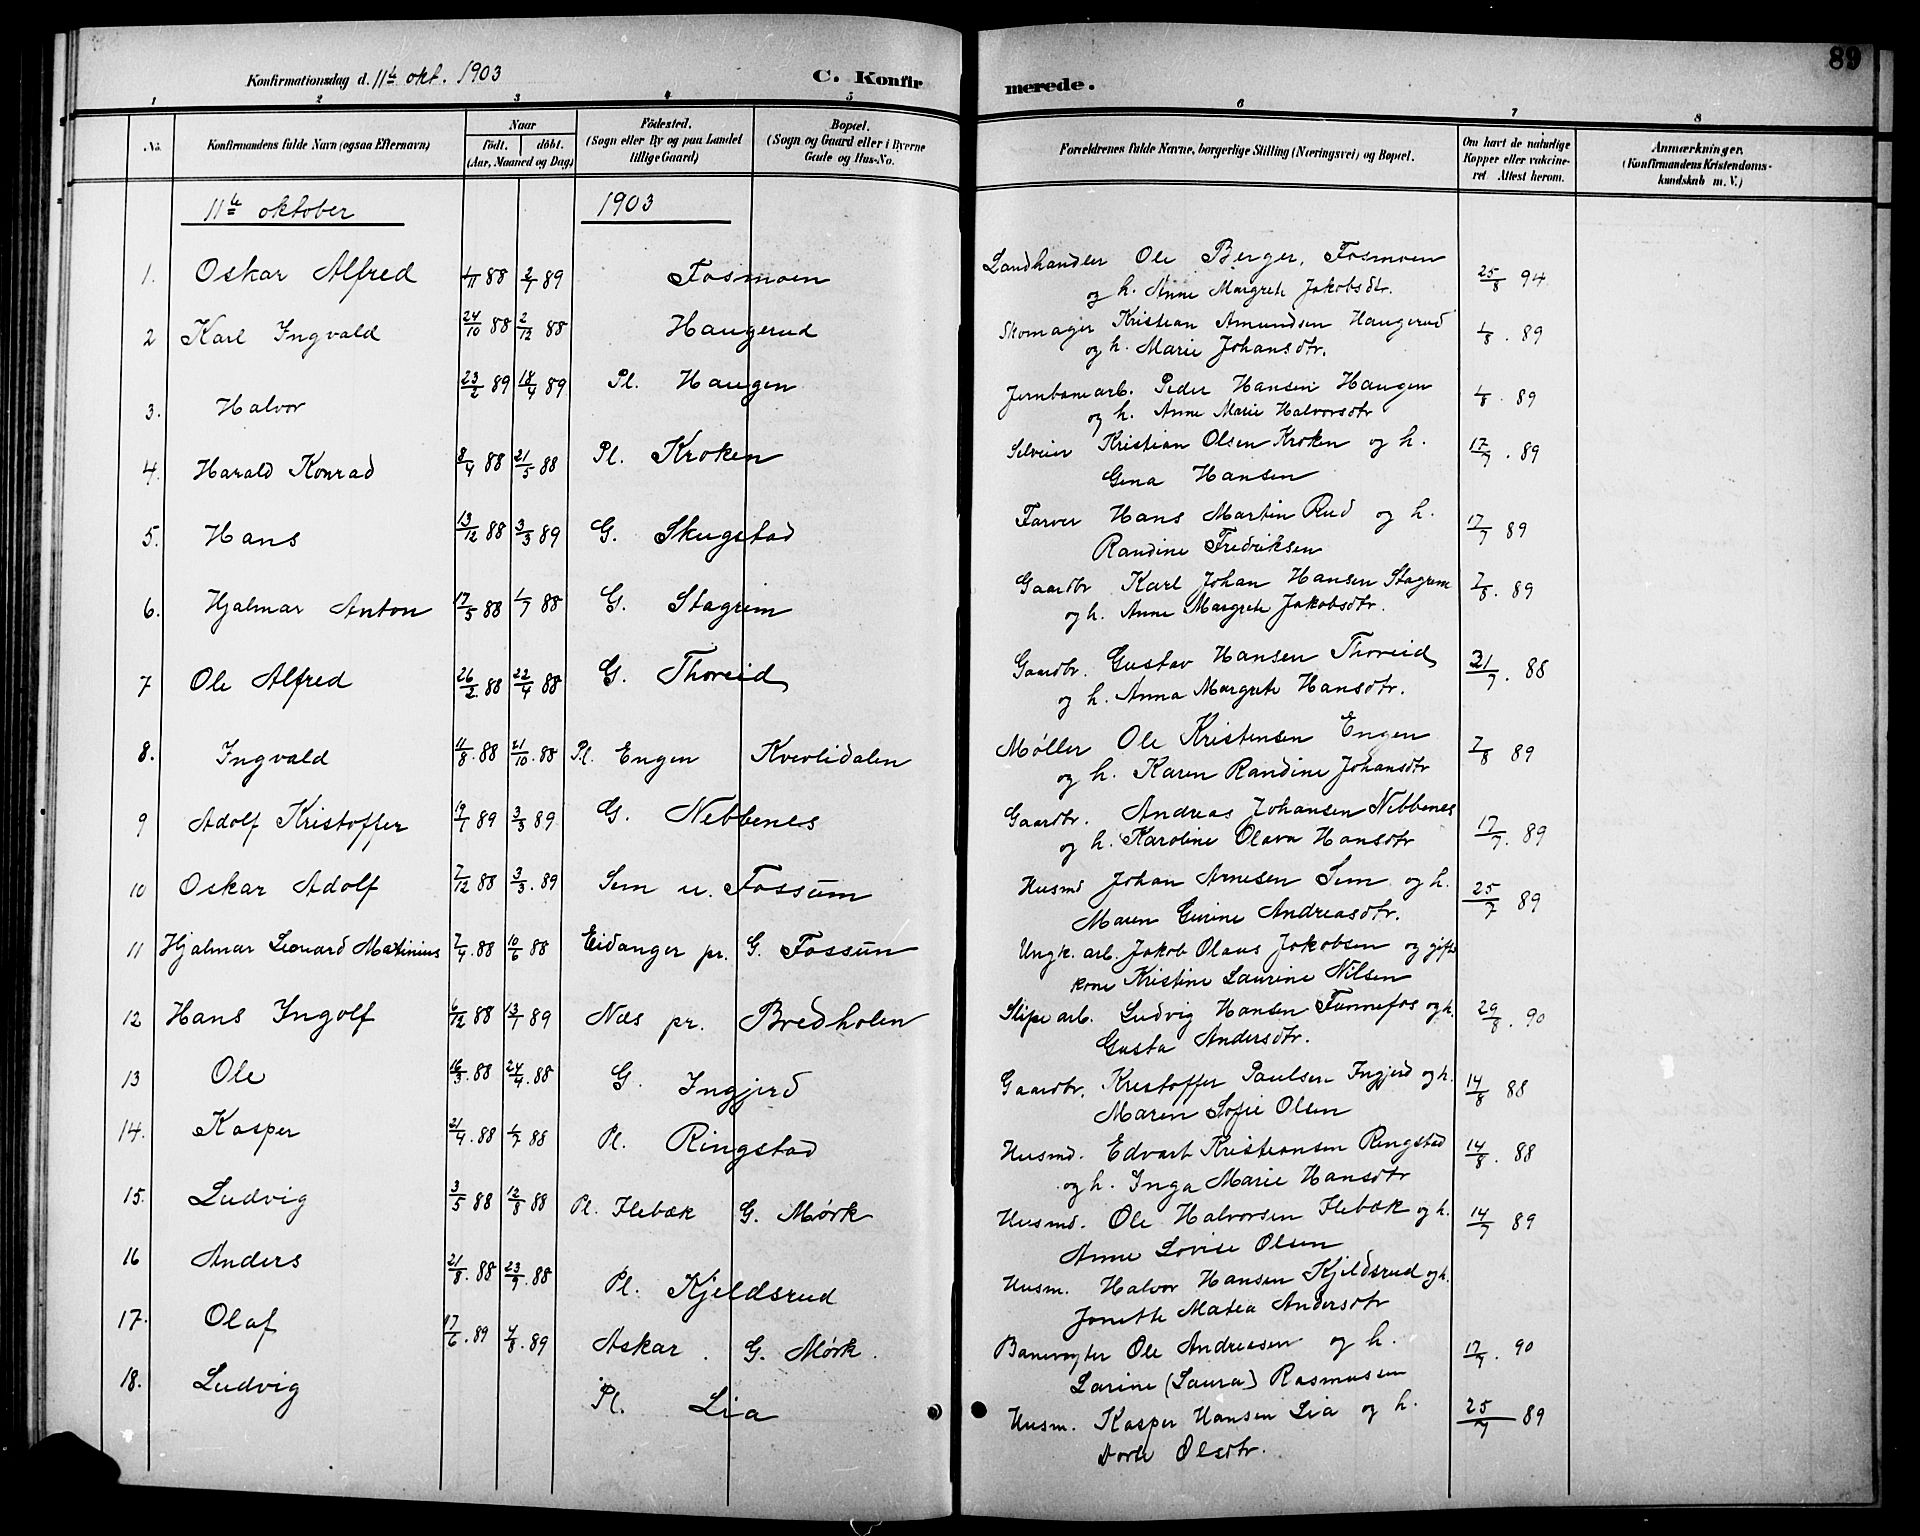 89
Konfirmationsdag d. 11te okt. 1903
C. Konfirmerede.
1 2 3 4 5 6 7 8
No.
Konfirmandens fulde Navn (ogsaa Efternavn)
Naar
födt. döbt.
(Aar, Maaned og Dag)
Födested.
(Sogn eller By og paa Landet
tillige Gaard)
Bopæl.
(Sogn og Gaard eller i Byerne
Gade og Hus-No.
Forældrenes fulde Navne, borgerlige Stilling (Næringsvei) og Bopæl.
Om havt de naturlige
Kopper eller vakcine-
ret Attest herom.
Anmærkninger.
(Konfirmandens Kristendoms-
kundskab m. V.)
11te oktober 1903
1. Oskar Alfred 4/11 88 2/1 89 Fosmoen Landhandler Ole Berger, Fosmoen 25/8 94
og h. Anne Margrete Jakobsdtr.
2 Karl Ingvald 24/10 88 2/12 88 Haugerud Skomager Kristian Amundsen Haugerud 1/8. 89
og h. Marie Johansdtr.
3. Halvor 23/2 89 18/4 89 Pl. Haugen Jernbanearb. Peder Hansen Haugen 1/8. 89
og h. Anne Marie Halvorsdtr
4. Harald Konrad 8/4 88 21/5 88 Pl. Kroken Selveier Kristian Olsen Kroken og h. 17/7. 89
Gina Hansen
5. Hans 13/12 88 3/3 89 G. Skugstad Farver Hans Martin Rud og h. 17/7 89
Randine Fredriksen
6. Hjalmar Anton 17/5 88 1/7 88 G. Stagrim Gaardbr Karl Johan Hansen Stagrim 7/8. 89
og h. Anne Margrete Jakobsdtr.
7 Ole Alfred 26/2. 88 22/4 88 G. Thoreid Gaardbr. Gustav Hansen Thoreid 31/7. 88
og h. Anna Margrete Hansdtr.
8. Ingvald 11/8. 88 21/10. 88 Pl. Engen Kverlidalen Møller Ole Kristensen Engen 7/8 89
og h. Karen Randine Johansdtr
9 Adolf Kristoffer 19/1 89 3/3 89. G. Nebbenes Gaardbr. Andreas Johansen Nebbenes 17/7. 89
og h. Karoline Olava Hansdtr
10 Oskar Adolf 7/12 88 3/3. 89 Sem u. Fossum Husmd Johan Arnesen Sem og h. 25/7 89
Maren Gurine Andreasdtr.
11 Hjalmar Leonard Matinius 7/4. 88 10/6 88 Eidanger pr. G. Fossum Ungk. arb. Jakob Olaus Jakobsen og gift
kone Kristine Laurine Nilsen
12 Hans Ingolf 6/12 88 13/1 89 Næs pr. Bredholen Slipearb. Ludvig Hansen Funnefos og h. 29/8. 90
Gusta Andersdtr.
13 Ole 16/3. 88 24/4. 88 G. Ingjerd Gaardbr. Kristoffer Paulsen Ingjerd og h. 14/8 88
Maren Sofie Olsen
14. Kasper 21/4. 88 1/7 88 Pl. Ringstad Husmd. Edvart Kristiansen Ringstad 14/8. 88
og h. Inga Marie Hansdtr
15. Ludvig 3/5 88 12/8 88 Pl. Flebæk G. Mørk Husmd. Ole Halvorsen Flebæk og h. 14/7 89
Anne Lovise Olsen
16 Anders 21/8. 88 23/9. 88 Pl. Kjeldsrud Husm. Halvor Hansen Kjeldsrud og h.
Jonette Matea Andersdtr
17. Olaf 17/6. 89 4/8. 89 Askar. G. Mørk. Banevogter Ole Andreasen og h. 17/7. 90
Larine (Laura) Rasmusen
18. Ludvig Pl. Lia Husm. Kasper Hansen Lia og h. 25/7 89
Dorte Olsdtr.